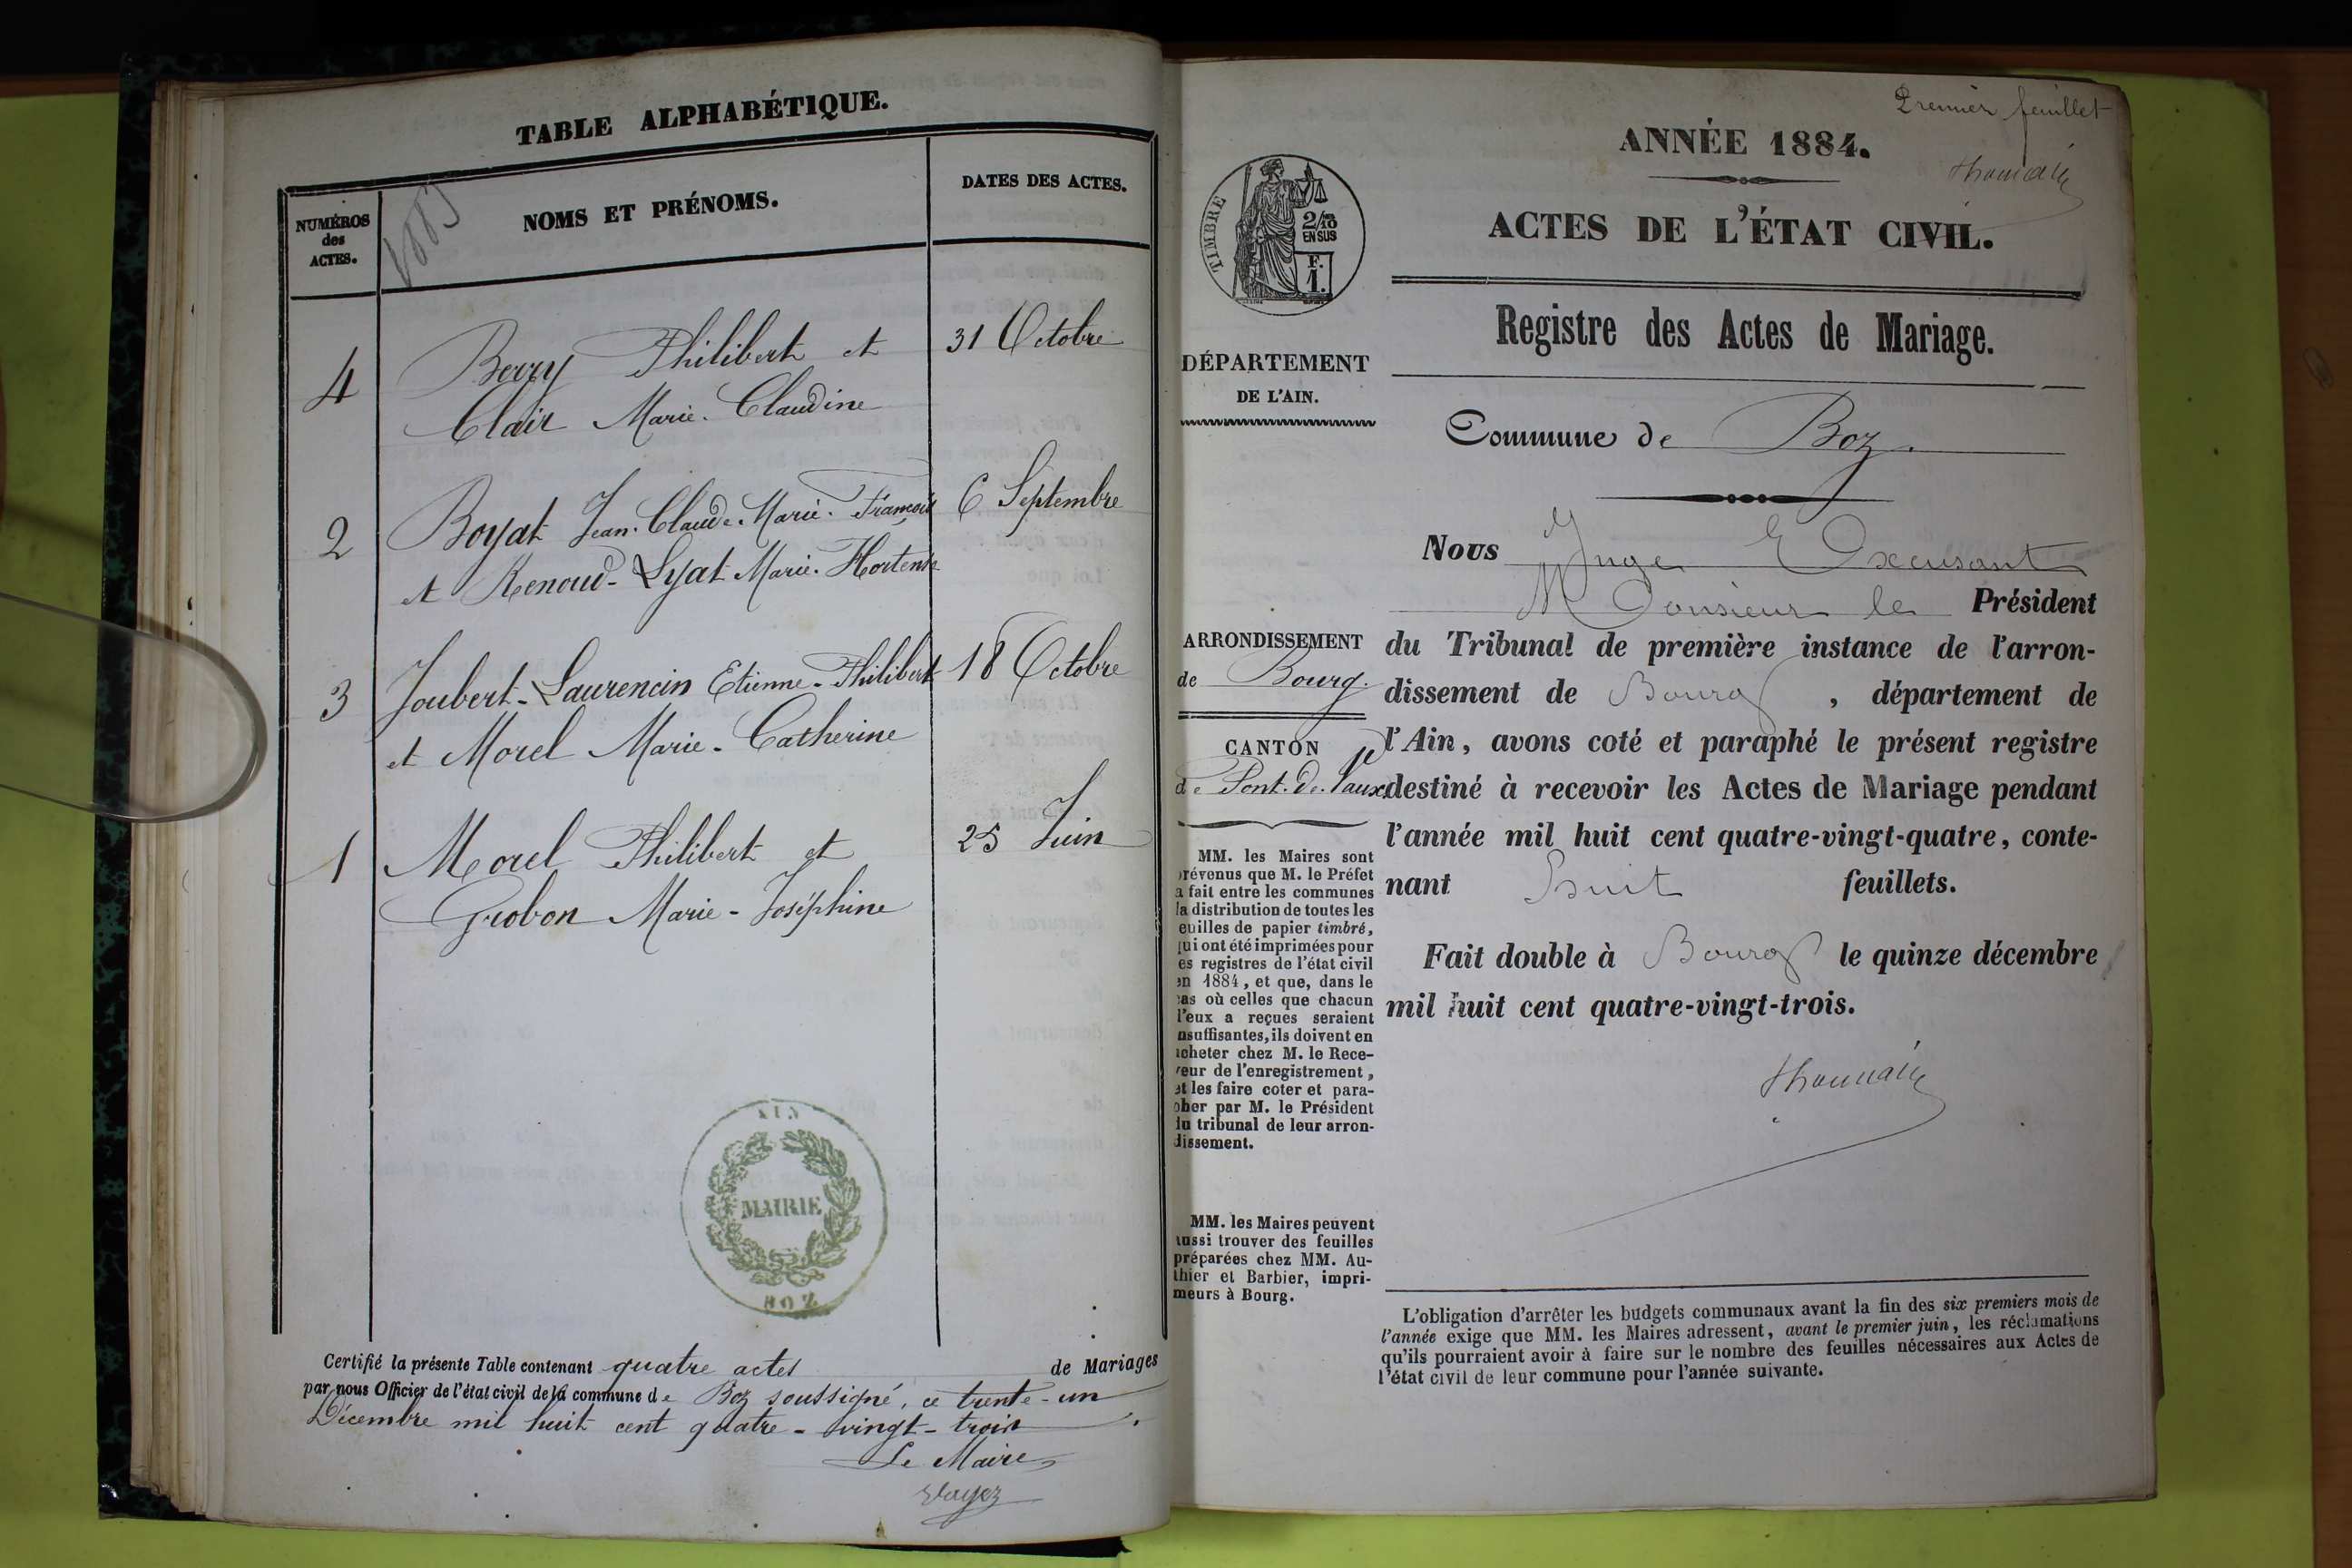 TABLE ALPHABÉTIQUE.
NUMÉROS
des
ACTES.
1883
NOMS ET PRÉNOMS.
DATES DES ACTES.
4 Berry Philibert et 31 Octobre
Clair Marie-Claudine
2 Boyat Jean-Claude-Marie-François 6 Septembre
et Renoud-Lyat Marie-Hortense
3 Joubert-Laurencin Etienne-Philibert 18 Octobre
et Morel Marie-Catherine
1 Morel Philibert et 25 Juin
Grobon Marie-Joséphine
AIN
MAIRIE
BOZ
Certifié la présente Table contenant quatre actes de Mariages
par nous Officier de l'état civil de la commune de Boz soussigné, ce trente-un
Décembre mil huit cent quatre-vingt-trois.
Le Maire
Premier feuillet
ANNÉE 1884.
ACTES DE L'ÉTAT CIVIL.
TIMBRE
2/10
EN SUS
F.
1.
Registre des Actes de Mariage.
DÉPARTEMENT
DE L'AIN.
Commune de Boz.
ARRONDISSEMENT
de Bourg.
CANTON
de Pont-de-Vaux
MM. les Maires sont
prévenus que M. le Préfet
a fait entre les communes
la distribution de toutes les
feuilles de papier timbré,
qui ont été imprimées pour
les registres de l'état civil
en 1884, et que, dans le
cas où celles que chacun
d'eux a reçues seraient
insuffisantes, ils doivent en
acheter chez M. le Rece-
veur de l'enregistrement,
et les faire coter et para-
pher par M. le Président
du tribunal de leur arron-
dissement.
MM. les Maires peuvent
aussi trouver des feuilles
préparées chez MM. Au-
thier et Barbier, impri-
meurs à Bourg.
Nous Juge Excusant
Monsieur le Président
du Tribunal de première instance de l'arron-
dissement de Bourg, département de
l'Ain, avons coté et paraphé le présent registre
destiné à recevoir les Actes de Mariage pendant
l'année mil huit cent quatre-vingt-quatre, conte-
nant huit feuillets.
Fait double à Bourg le quinze décembre
mil huit cent quatre-vingt-trois.
L'obligation d'arrêter les budgets communaux avant la fin des six premiers mois de
l'année exige que MM. les Maires adressent, avant le premier juin, les réclamations
qu'ils pourraient avoir à faire sur le nombre des feuilles nécessaires aux Actes de
l'état civil de leur commune pour l'année suivante.